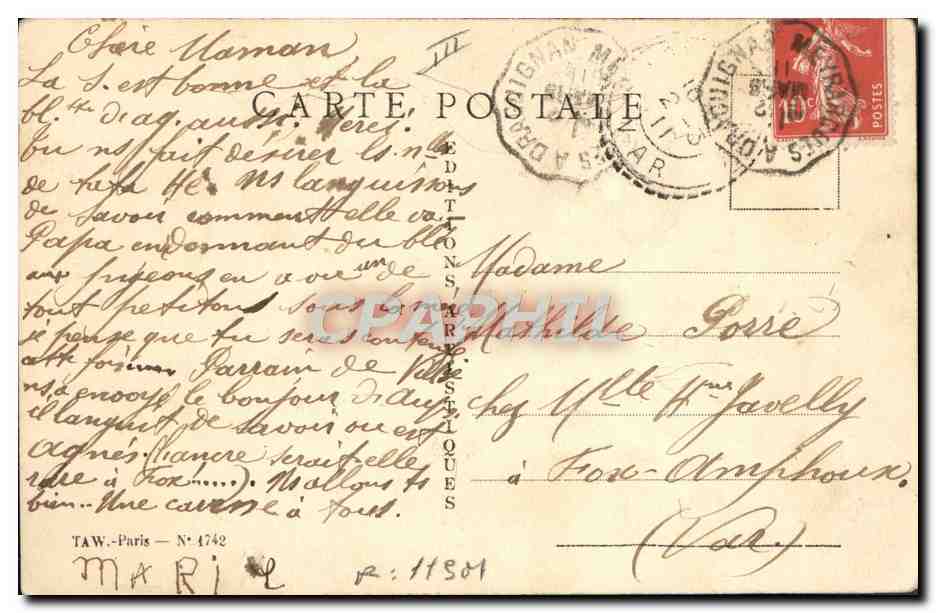 Chère Maman
La S. est bonne et la
bl. diag. aussi.
CARTE POSTALE
tu ns fait désirer ls nles
de tata Hé. Ns languissons
de savoir comment elle va
Papa en donnant du blé
aux pigeons en a vu un de
tout petitons sous la mère
je pense que tu seras contente
Parrain de
ns a envoyé le bonjour d'Aups
il languit de savoir ou est
Agnès. (L'ancre serait elle
rare à Fox.....). Ns allons ts
bien.. Une caresse à tous.
EDITIONS ARTISTIQUES
Madame
Mathilde Porre
chez Mlle Javelly
à Fox-Amphoux.
(Var.)
TAW.-Paris — No 1742
MARIL
R: 11901
MEYRARGUES A DRAGUIGNAN
VAR
10c
POSTES
CPAPHIL